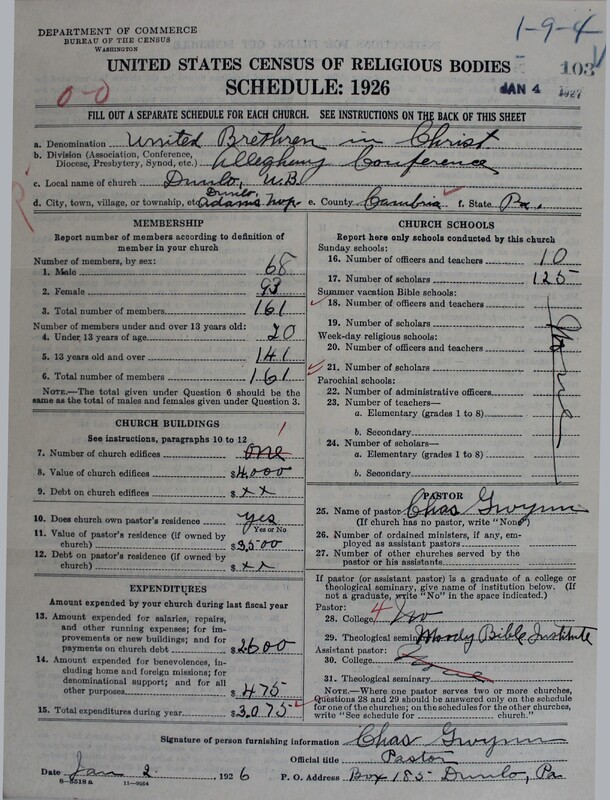 DEPARTMENT OF COMMERCE
BUREAU OF THE CENSUS
WASHINGTON
1-9-4
UNITED STATES CENSUS OF RELIGIOUS BODIES
103
SCHEDULE: 1926
JAN 4 1927
0-0
FILL OUT A SEPARATE SCHEDULE FOR EACH CHURCH. SEE INSTRUCTIONS ON THE BACK OF THIS SHEET
a. Denomination United Brethren in Christ
b. Division (Association, Conference, Diocese, Presbytery, Synod, etc.) Allegheny Conference
c. Local name of church Dunlo, U.B.
d. City, town, village, or township, etc. Dunlo, Adams Twp. e. County Cambria f. State Pa.
MEMBERSHIP
Report number of members according to definition of
member in your church
Number of members, by sex:
1. Male 68
2. Female 93
3. Total number of members 161
Number of members under and over 13 years old:
4. Under 13 years of age 20
5. 13 years old and over 141
6. Total number of members 161
NOTE.—The total given under Question 6 should be the
same as the total of males and females given under Question 3.
CHURCH BUILDINGS
See instructions, paragraphs 10 to 12
1
7. Number of church edifices one
8. Value of church edifices $4000
9. Debt on church edifices $xx
10. Does church own pastor's residence yes
Yes or No
11. Value of pastor's residence (if owned by
church) $3500
12. Debt on pastor's residence (if owned by
church) $xx
EXPENDITURES
Amount expended by your church during last fiscal year
13. Amount expended for salaries, repairs,
and other running expenses; for im-
provements or new buildings; and for
payments on church debt $2600
14. Amount expended for benevolences, in-
cluding home and foreign missions; for
denominational support; and for all
other purposes $475
15. Total expenditures during year $3075
CHURCH SCHOOLS
Report here only schools conducted by this church
Sunday schools:
16. Number of officers and teachers 10
17. Number of scholars 125
Summer vacation Bible schools:
18. Number of officers and teachers
19. Number of scholars
Week-day religious schools:
20. Number of officers and teachers
21. Number of scholars
Parochial schools:
22. Number of administrative officers
23. Number of teachers—
a. Elementary (grades 1 to 8)
b. Secondary
24. Number of scholars—
a. Elementary (grades 1 to 8)
b. Secondary
None
PASTOR
25. Name of pastor Chas Gwynn
(If church has no pastor, write "None")
26. Number of ordained ministers, if any, em-
ployed as assistant pastors
27. Number of other churches served by the
pastor or his assistants
If pastor (or assistant pastor) is a graduate of a college or
theological seminary, give name of institution below. (If
not a graduate, write "No" in the space indicated.)
Pastor: 4
28. College No
29. Theological seminary Moody Bible Institute
Assistant pastor:
30. College
31. Theological seminary
NOTE.—Where one pastor serves two or more churches,
Questions 28 and 29 should be answered only on the schedule
for one of the churches; on the schedules for the other churches,
write "See schedule for ........ church."
Signature of person furnishing information Chas Gwynn
Official title Pastor
Date Jan 2, 1926 P. O. Address Box 185 Dunlo, Pa
8-5518a 11-9954